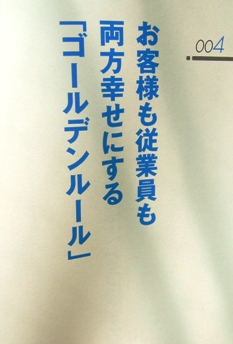 004
お客様も従業員も
両方幸せにする
「ゴールデンルール」